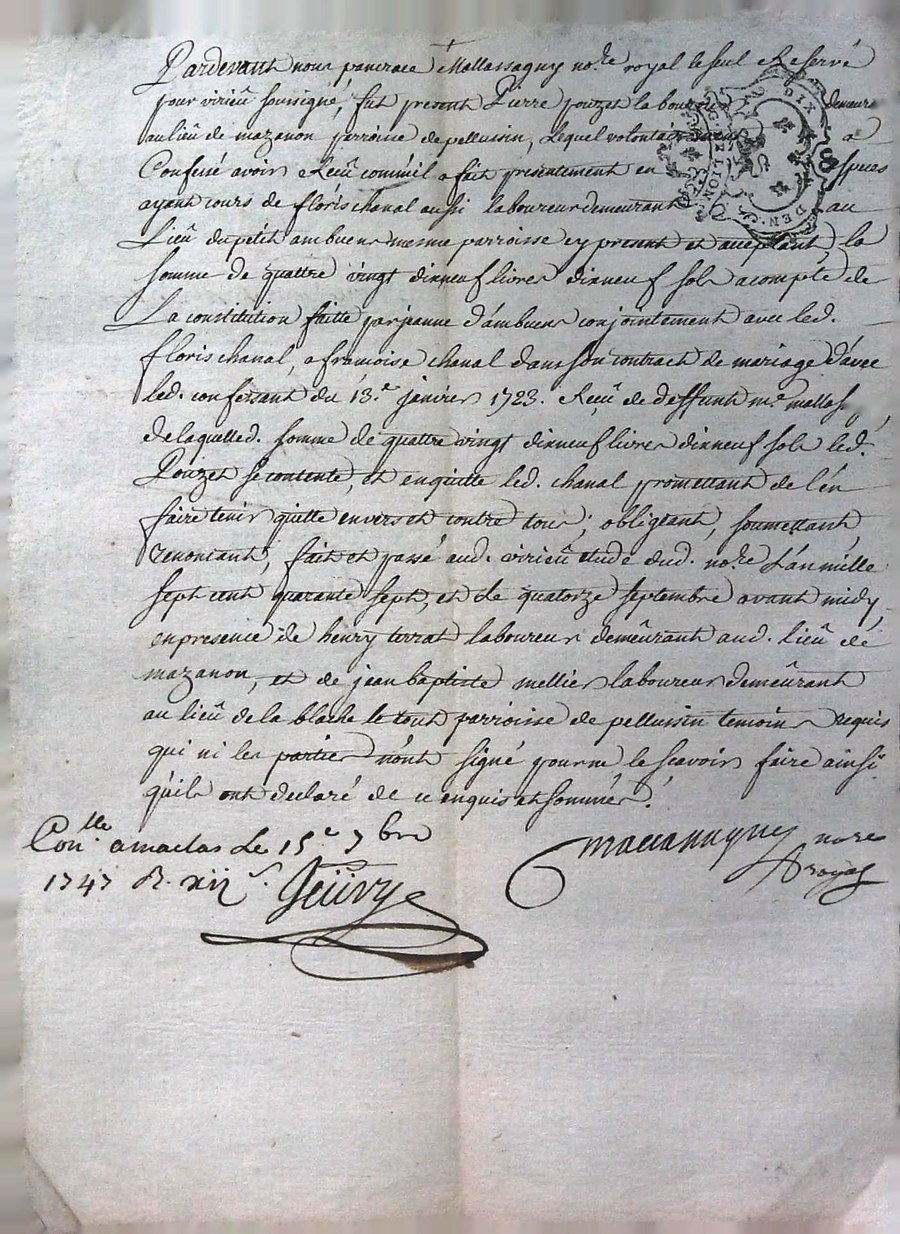 Pardevant nous pancrace Mallassagny no.re royal le seul et Reservé
pour virieu soussigné, fut present Pierre pouzet laboureur demeur
au lieu de mazanon parroisse de pellussin, Lequel volontairement a
Confessé avoir Receu comm'il a fait presentement en especes
ayant cours de floris chanal aussi laboureur demeurant au
Lieu du petit ambuens mesme parroisse ey present et acceptant, la
somme de quattre vingt dixneuf livres dixneuf sols acompte de
La constitution faitte par jeanne d'ambuens conjointement avec led.
floris chanal, a francoise chanal dans son contract de mariage d'avec
led. confessant du 13.e janvier 1723. Receu de deffunt m.e mallass
de laquelled. somme de quattre vingt dixneuf livres dixneuf sols led.
Pouzet se contente, et en quitte led. chanal promettant de l'en
faire tenir quitte envers et contre tous; obligeant, soumettant,
renoncant, fait et passé aud. virieu etude dud. no.re L'an mille
sept cent quarante sept, et le quatorze septembre avant midy,
en presence de henry terrat laboureur demeurant aud. lieu de
mazanon, et de jean baptiste mellier laboureur demeurant
au lieu de la blache le tout parroisse de pellussin temoins requis
qui ni les parties n'ont signé pour ne le scavoir faire ainsi
qu'ils ont declaré de ce enquis et sommés.
DIX
DEN.
Con.lle a maclas Le 15.e 7bre
1747 R. xij s. Geüvry
Mallassagny no.re
royal